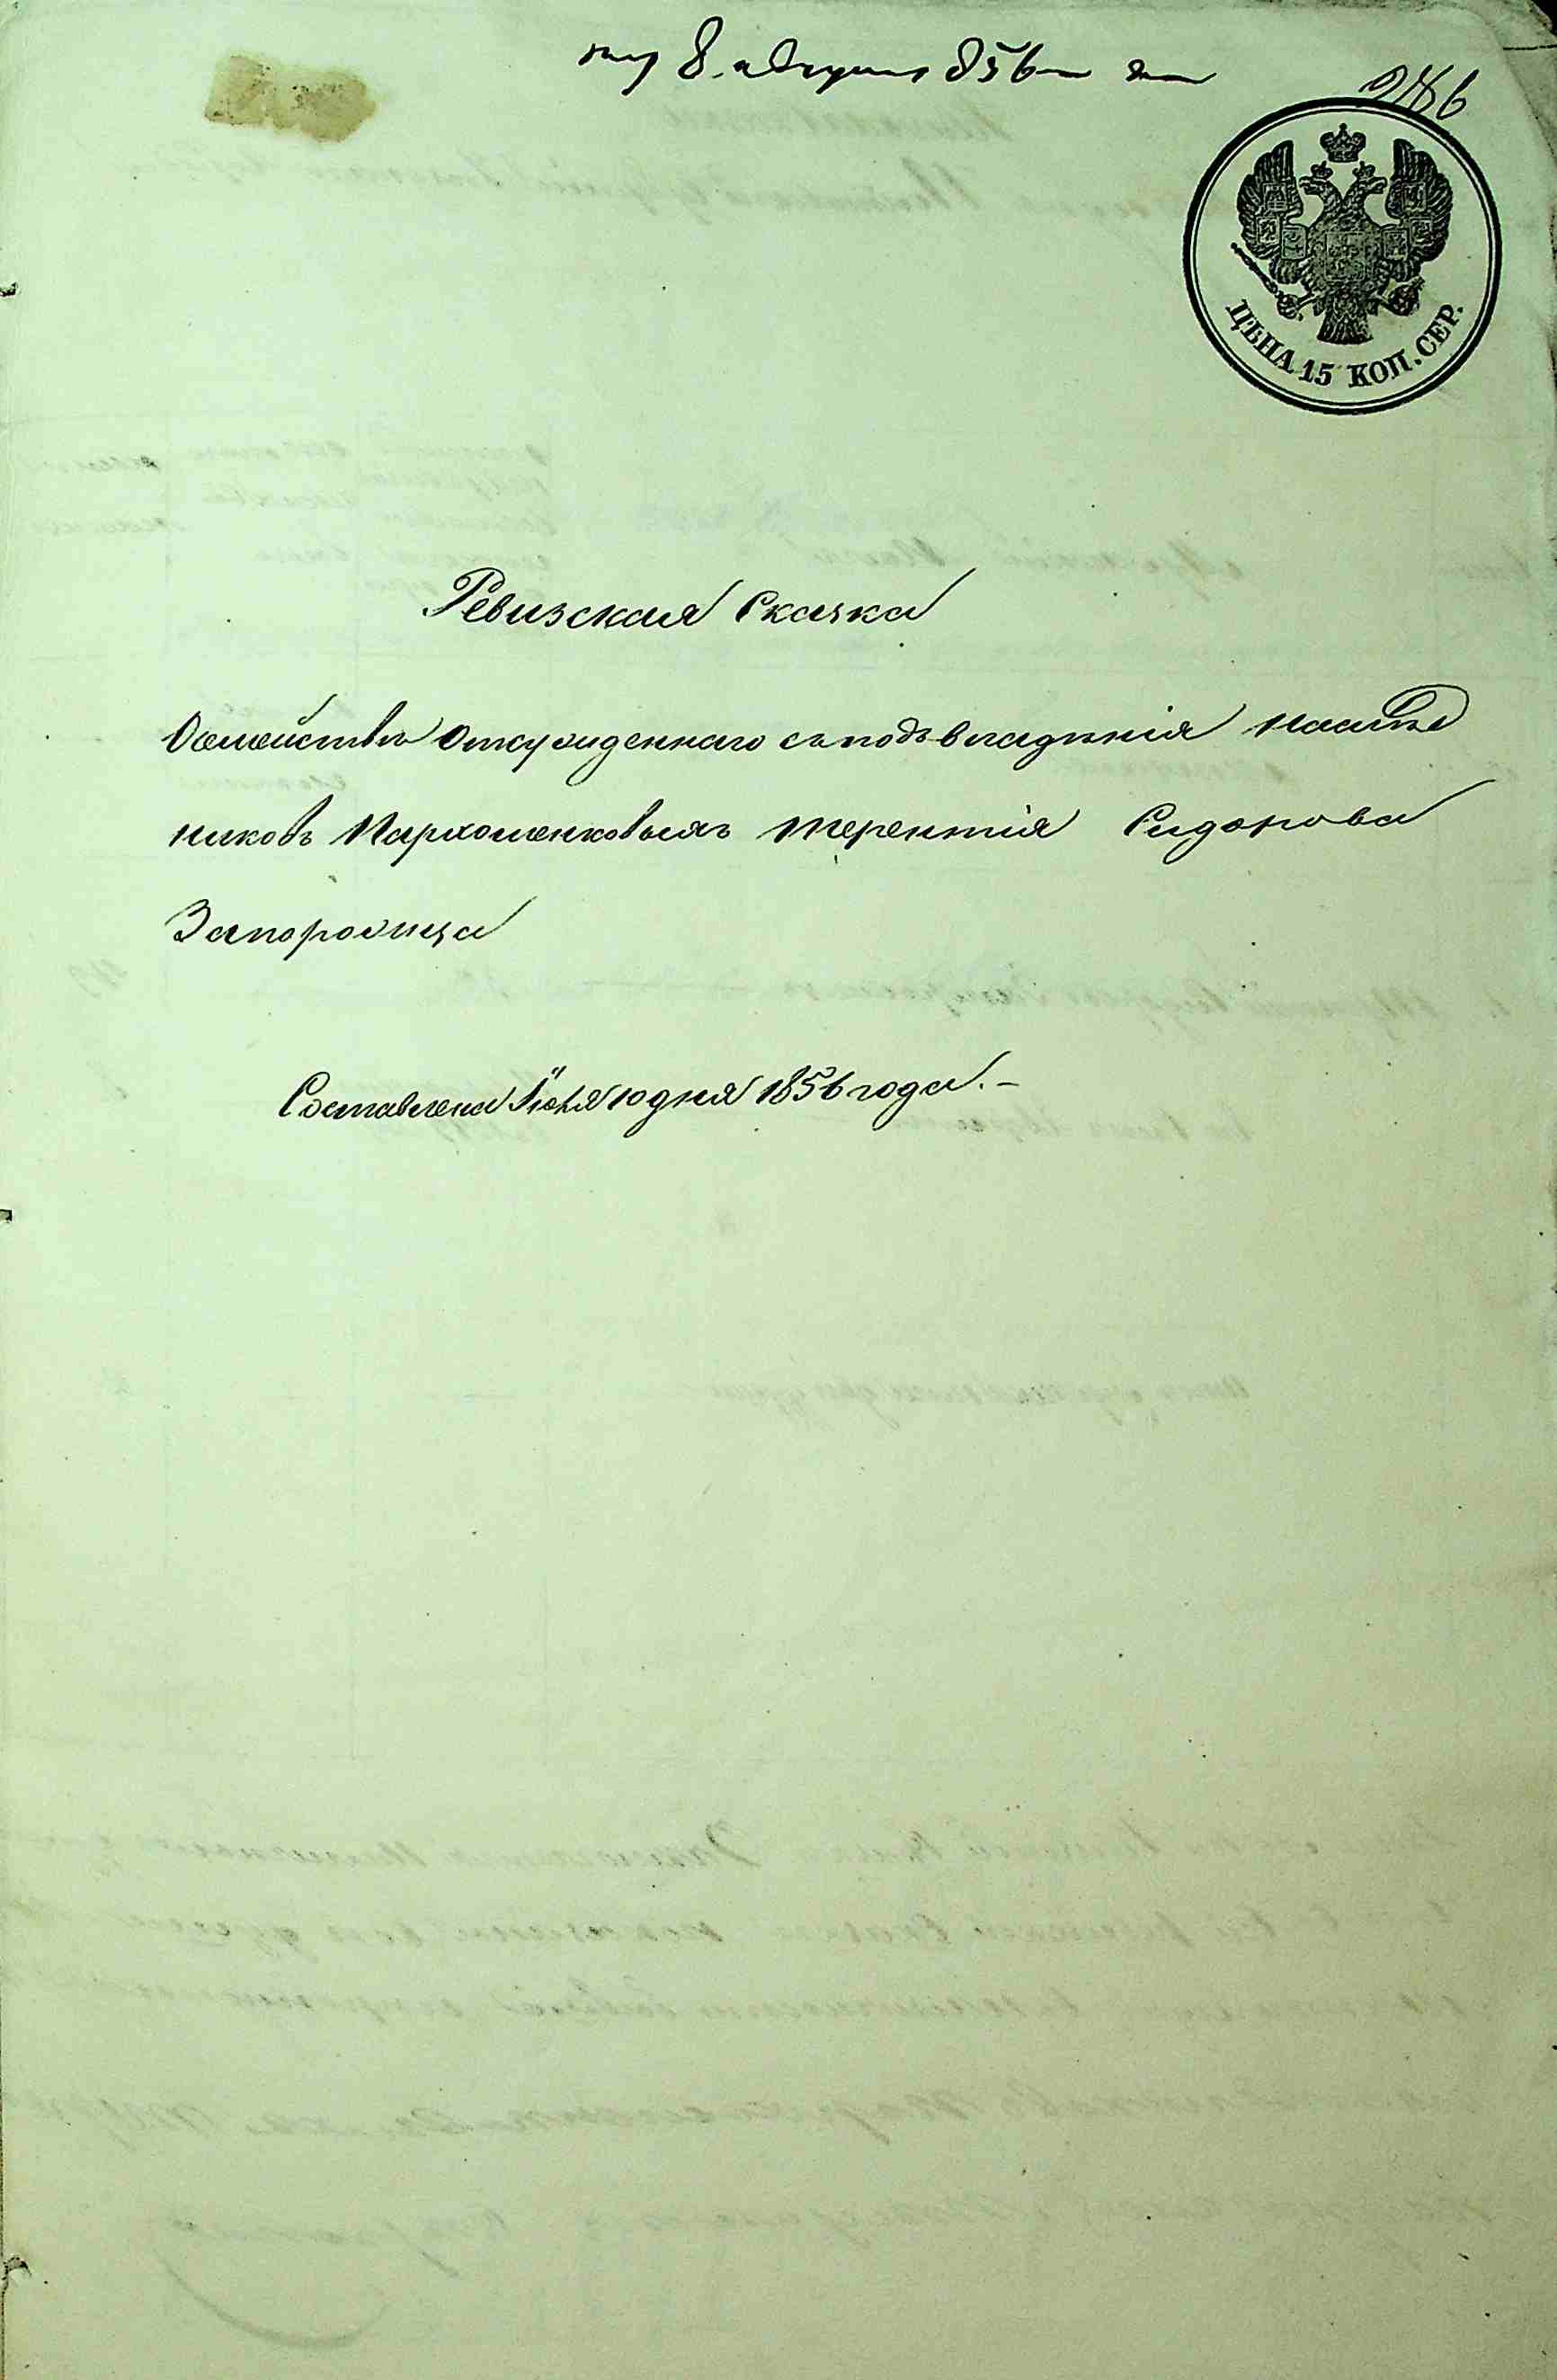 8. августа 856
ЦѢНА 15 КОП. СЕР.
Ревизская Сказка
О семействе Отсужденнаго съ подъ владѣнія наслѣд
никовъ Пархоменковыхъ Терентія Сидорова
Запорожца
Составлена Іюля 10 дня 1856 года.-